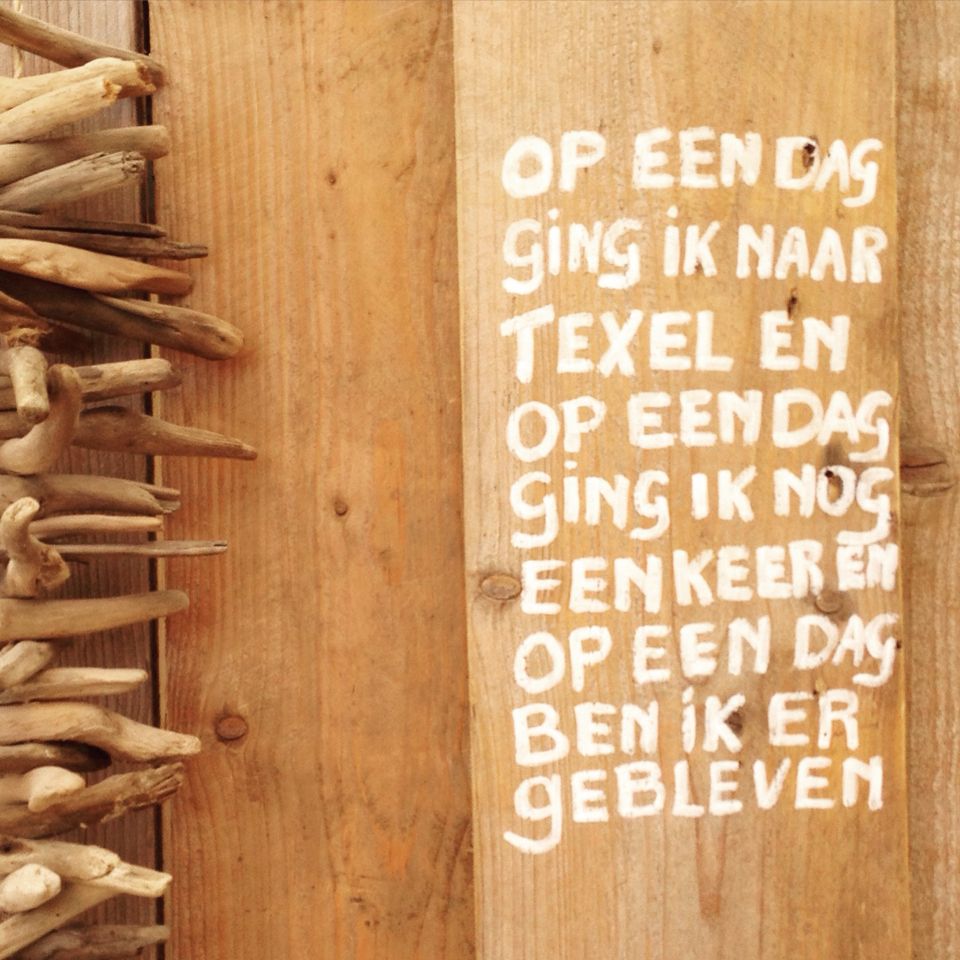 OP EEN DAG
GiNG iK NAAR
TEXEL EN
OP EEN DAG
GiNG IK NOG
EEN KEER EN
OP EEN DAG
BEN iK ER
gEBLEVEN